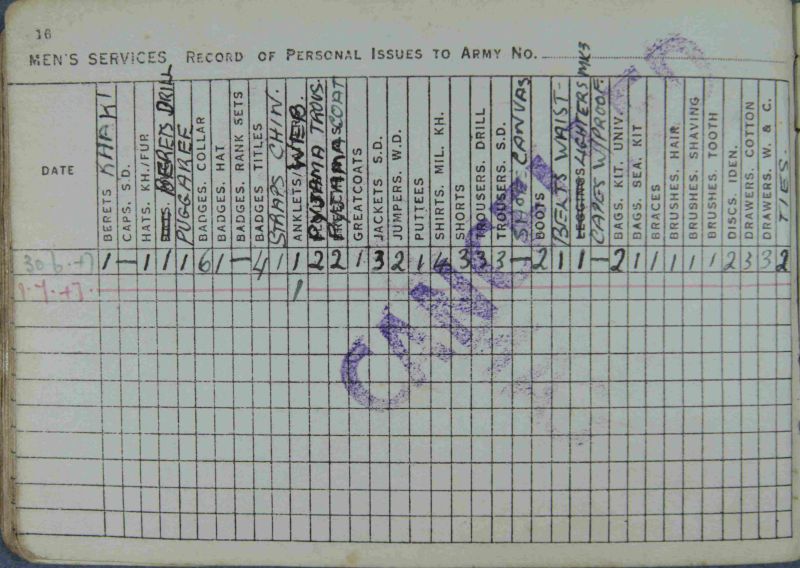 16
MEN'S SERVICES RECORD OF PERSONAL ISSUES TO ARMY NO.
DATE
BERETS KHAKI
CAPS. S.D.
HATS. KH./FUR
BERETS DRILL
PUGGAREE
BADGES. COLLAR
BADGES. HAT
BADGES. RANK SETS
BADGES TITLES
STRAPS CHIN.
ANKLETS WEB.
PYJAMA TROUS.
PYJAMAS COAT
GREATCOATS
JACKETS S.D.
JUMPERS. W.D.
PUTTEES
SHIRTS. MIL. KH.
SHORTS
TROUSERS. DRILL
TROUSERS. S.D.
SHOE CANVAS
BOOTS
BELTS WAIST-
LEGGINGS LIGHTERS MK3
CAPES W/PROOF.
BAGS. KIT. UNIV.
BAGS. SEA. KIT
BRACES
BRUSHES. HAIR
BRUSHES. SHAVING
BRUSHES. TOOTH
DISCS. IDEN.
DRAWERS. COTTON
DRAWERS. W. & C.
TIES.
30.6.47 1 — 1 1 1 6 1 — 4 1 1 2 2 1 3 2 1 4 3 3 3 — 2 1 1 — 2 1 1 1 1 1 2 3 3 2
1.7.47. 1
CANCELLED